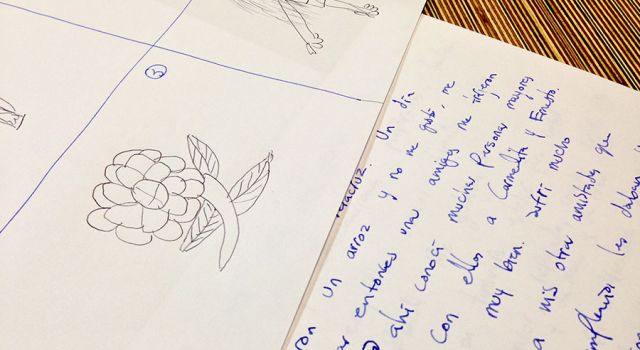 3
Un día
ron un arroz y no me gustó, me
ar entonces unas amigas me trajeron
ahí conocí muchas Personas mayores
con ellas a Carmelita y Ernesto.
muy bien. sufrí mucho
a mis otras amistades que
les daban